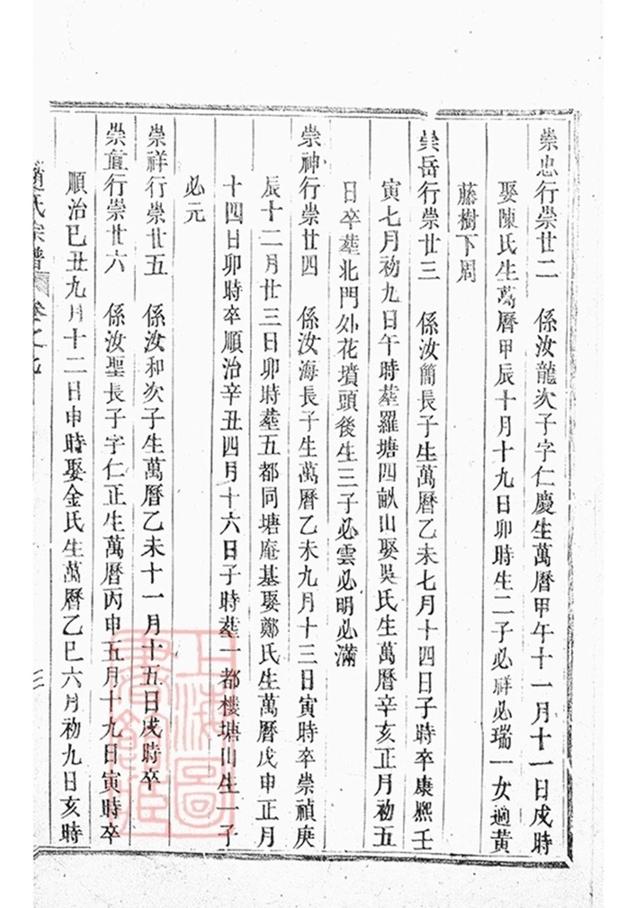 崇忠行崇廿二　係汝龍次子字仁慶生萬曆甲午十一月十一日戌時
娶陳氏生萬曆甲辰十月十九日卯時生二子必祥必瑞一女適黃
藤樹下周
崇岳行崇廿三　係汝簡長子生萬曆乙未七月十四日子時卒康熙壬
寅七月初九日午時塟羅塘四畝山娶吳氏生萬曆辛亥正月初五
日卒塟北門外花墳頭後生三子必雲必明必滿
崇神行崇廿四　係汝海長子生萬曆乙未九月十三日寅時卒崇禎庚
辰十二月廿三日卯時塟五都同塘庵基娶鄭氏生萬曆戊申正月
十四日卯時卒順治辛丑四月十六日子時塟一都樓塘山生一子
必元
崇祥行崇廿五　係汝和次子生萬曆乙未十一月十五日戌時卒
崇直行崇廿六　係汝聖長子字仁正生萬曆丙申五月十九日寅時卒
順治己丑九月十二日申時娶金氏生萬曆乙巳六月初九日亥時
趙氏宗譜　卷之九　三
上海圖書館藏